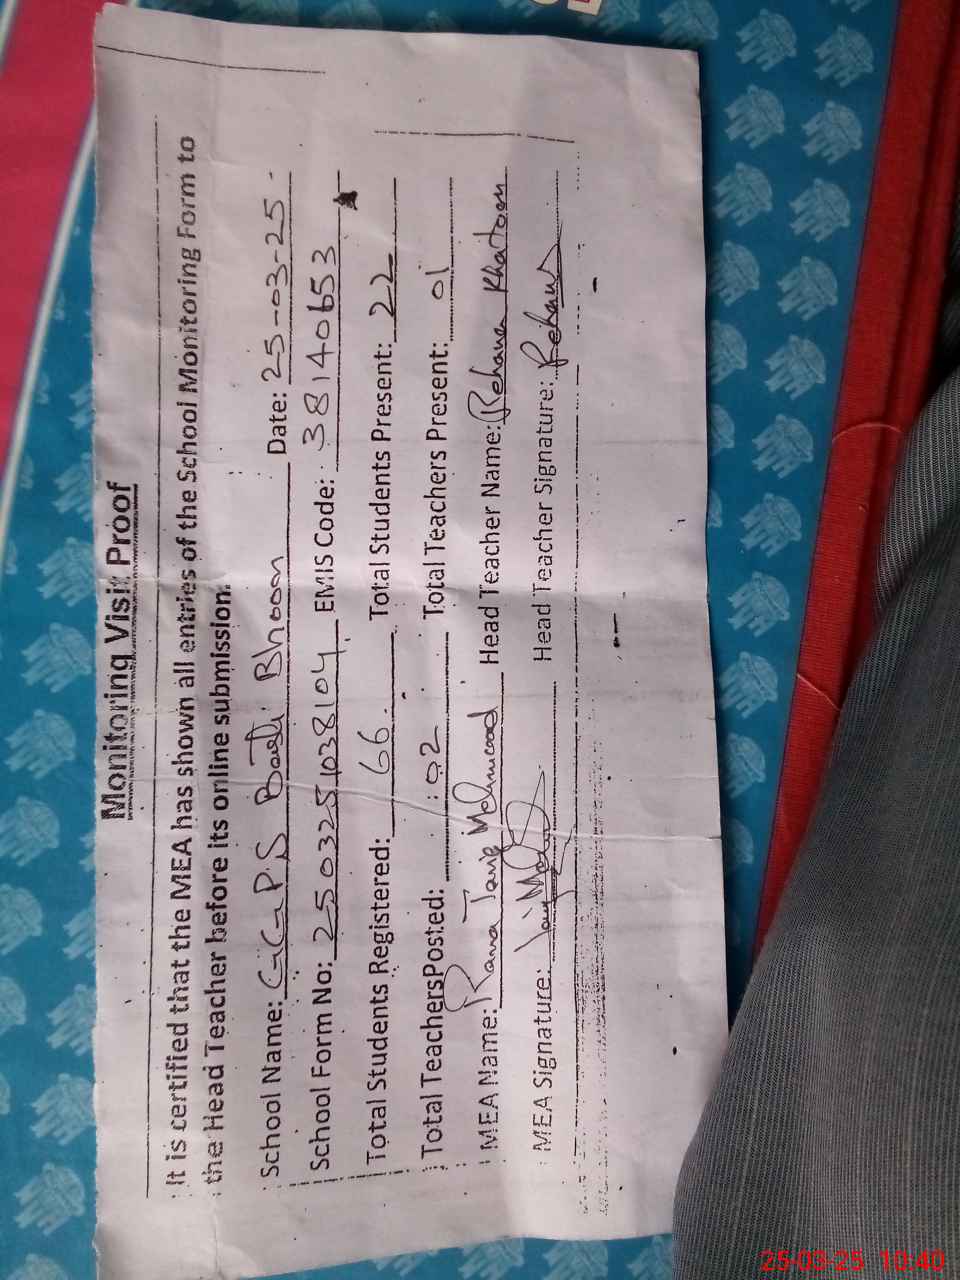 Monitoring Visit Proof
It is certified that the MEA has shown all entries of the School Monitoring Form to
the Head Teacher before its online submission.
School Name: GGPS Basti Bhoon Date: 25-03-25
School Form No: 2503251038104 EMIS Code: 38140653
Total Students Registered: 66 Total Students Present: 22
Total TeachersPosted: 02 Total Teachers Present: 01
MEA Name: Rana Mehmood Head Teacher Name: Rehana Khatoon
MEA Signature: Head Teacher Signature:
25-03-25 10:40